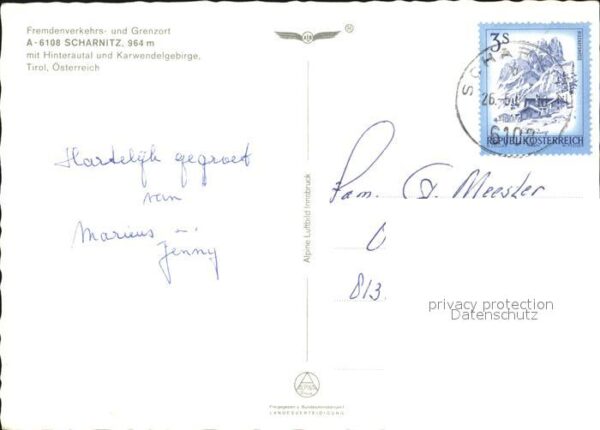 Fremdenverkehrs- und Grenzort
A-6108 SCHARNITZ, 964 m
mit Hinterautal und Karwendelgebirge,
Tirol, Österreich
3S
SCHARNITZ
26. 5.
6108
REPUBLIK ÖSTERREICH
Hartelijk gegroet
van
Marinus en
Jenny
Fam. D. Meester
813.
Alpine Luftbild Innsbruck
privacy protection
Datenschutz
ALPINE
Freigegeben v. Bundesministerium f.
LANDESVERTEIDIGUNG